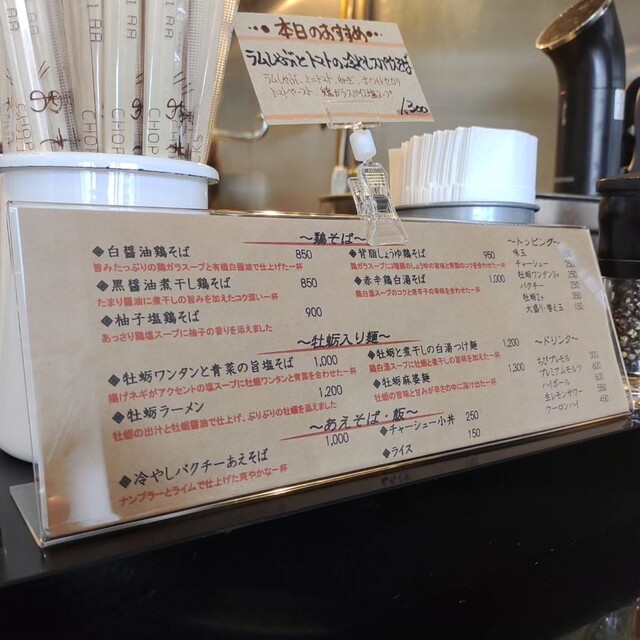 本日のおすすめ
1,300
〜鶏そば〜
◆白醤油鶏そば 850
旨みたっぷりの鶏ガラスープと有機白醤油で仕上げた一杯
◆黒醤油煮干し鶏そば 850
たまり醤油に煮干しの旨みを加えたコク深い一杯
◆柚子塩鶏そば 900
あっさり鶏塩スープに柚子の香りを添えました
◆背脂しょうゆ鶏そば 950
◆赤辛鶏白湯そば 1,000
鶏白湯スープのコクと唐辛子の辛味を合わせた一杯
〜牡蛎入り麺〜
◆牡蛎ワンタンと青菜の旨塩そば 1,000
揚げネギがアクセントの塩スープに牡蛎ワンタンと青菜を合わせた一杯
◆牡蛎ラーメン 1,200
牡蛎の出汁と牡蛎醤油で仕上げ、ぷりぷりの牡蠣を添えました
◆牡蛎と煮干しの白湯つけ麺 1,200
鶏白湯スープに牡蛎と煮干しの旨味を加えた一杯
◆牡蛎麻婆麺 1,300
牡蛎の旨味と甘みが辛さの中に溶け出た一杯
〜あえそば・飯〜
◆冷やしパクチーあえそば 1,000
ナンプラーとライムで仕上げた爽やかな一杯
◆チャーシュー小丼 250
◆ライス 150
〜トッピング〜
味玉
チャーシュー
牡蛎ワンタン
パクチー
牡蛎
大盛り・替え玉 150
〜ドリンク〜
ちびプレモル 300
プレミアムモルツ 600
ハイボール
生レモンサワー
ウーロンハイ